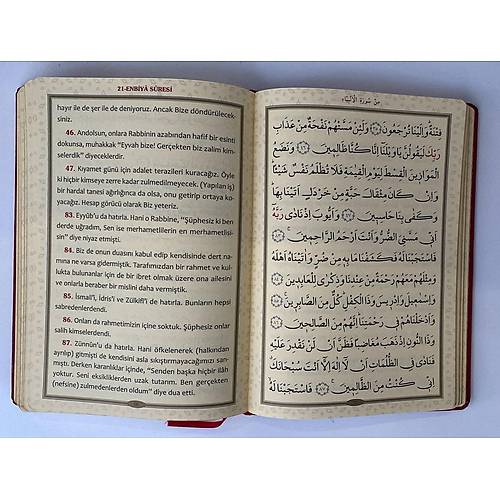 21-ENBİYÂ SÛRESİ
hayır ile de şer ile de deniyoruz. Ancak Bize döndürülecek-
siniz.
46. Andolsun, onlara Rabbinin azabından hafif bir esinti
dokunsa, muhakkak "Eyvah bize! Gerçekten biz zalim kim-
selerdik" diyeceklerdir.
47. Kıyamet günü için adalet terazileri kuracağız. Öyle
ki hiçbir kimseye zerre kadar zulmedilmeyecek. (Yapılan iş)
bir hardal tanesi ağırlığınca da olsa, onu getirip ortaya ko-
yacağız. Hesap görücü olarak Biz yeteriz.
83. Eyyûb'u da hatırla. Hani o Rabbine, "Şüphesiz ki ben
derde uğradım, Sen ise merhametlilerin en merhametlisi-
sin" diye niyaz etmişti.
84. Biz de onun duasını kabul edip kendisinde dert na-
mına ne varsa gidermiştik. Tarafımızdan bir rahmet ve kul-
lukta bulunanlar için de bir ibret olmak üzere ona ailesini
ve onlarla beraber bir mislini daha vermiştik.
85. İsmail'i, İdris'i ve Zülkifl'i de hatırla. Bunların hepsi
sabredenlerdendi.
86. Onları da rahmetimizin içine soktuk. Şüphesiz onlar
salih kimselerdendi.
87. Zünnûn'u da hatırla. Hani öfkelenerek (halkından
ayrılıp) gitmişti de kendisini asla sıkıştırmayacağımızı san-
mıştı. Derken karanlıklar içinde, "Senden başka hiçbir ilâh
yoktur. Seni eksikliklerden uzak tutarım. Ben gerçekten
(nefsine) zulmedenlerden oldum" diye dua etti.
مِنْ سُورَةِ الْاَنْبِيَاءِ
فِتْنَةً وَاِلَيْنَا تُرْجَعُونَ ﴿٣٥﴾ وَلَئِنْ مَسَّتْهُمْ نَفْحَةٌ مِنْ عَذَابِ
رَبِّكَ لَيَقُولُنَّ يَا وَيْلَنَا اِنَّا كُنَّا ظَالِمِينَ ﴿٤٦﴾ وَنَضَعُ
الْمَوَازِينَ الْقِسْطَ لِيَوْمِ الْقِيٰمَةِ فَلَا تُظْلَمُ نَفْسٌ شَيْـًٔا
وَاِنْ كَانَ مِثْقَالَ حَبَّةٍ مِنْ خَرْدَلٍ اَتَيْنَا بِهَا
وَكَفٰى بِنَا حَاسِبِينَ ﴿٤٧﴾ وَاَيُّوبَ اِذْ نَادٰى رَبَّهُ
اَنِّي مَسَّنِيَ الضُّرُّ وَاَنْتَ اَرْحَمُ الرَّاحِمِينَ ﴿٨٣﴾
فَاسْتَجَبْنَا لَهُ فَكَشَفْنَا مَا بِهِ مِنْ ضُرٍّ وَاٰتَيْنَاهُ اَهْلَهُ
وَمِثْلَهُمْ مَعَهُمْ رَحْمَةً مِنْ عِنْدِنَا وَذِكْرٰى لِلْعَابِدِينَ
وَاِسْمٰعِيلَ وَاِدْرِيسَ وَذَا الْكِفْلِ كُلٌّ مِنَ الصَّابِرِينَ ﴿٨٥﴾
وَاَدْخَلْنَاهُمْ فِي رَحْمَتِنَا اِنَّهُمْ مِنَ الصَّالِحِينَ ﴿٨٦﴾
وَذَا النُّونِ اِذْ ذَهَبَ مُغَاضِبًا فَظَنَّ اَنْ لَنْ نَقْدِرَ عَلَيْهِ
فَنَادٰى فِي الظُّلُمَاتِ اَنْ لَا اِلٰهَ اِلَّا اَنْتَ سُبْحَانَكَ
اِنِّي كُنْتُ مِنَ الظَّالِمِينَ ﴿٨٧﴾ فَاسْتَجَبْنَا لَهُ